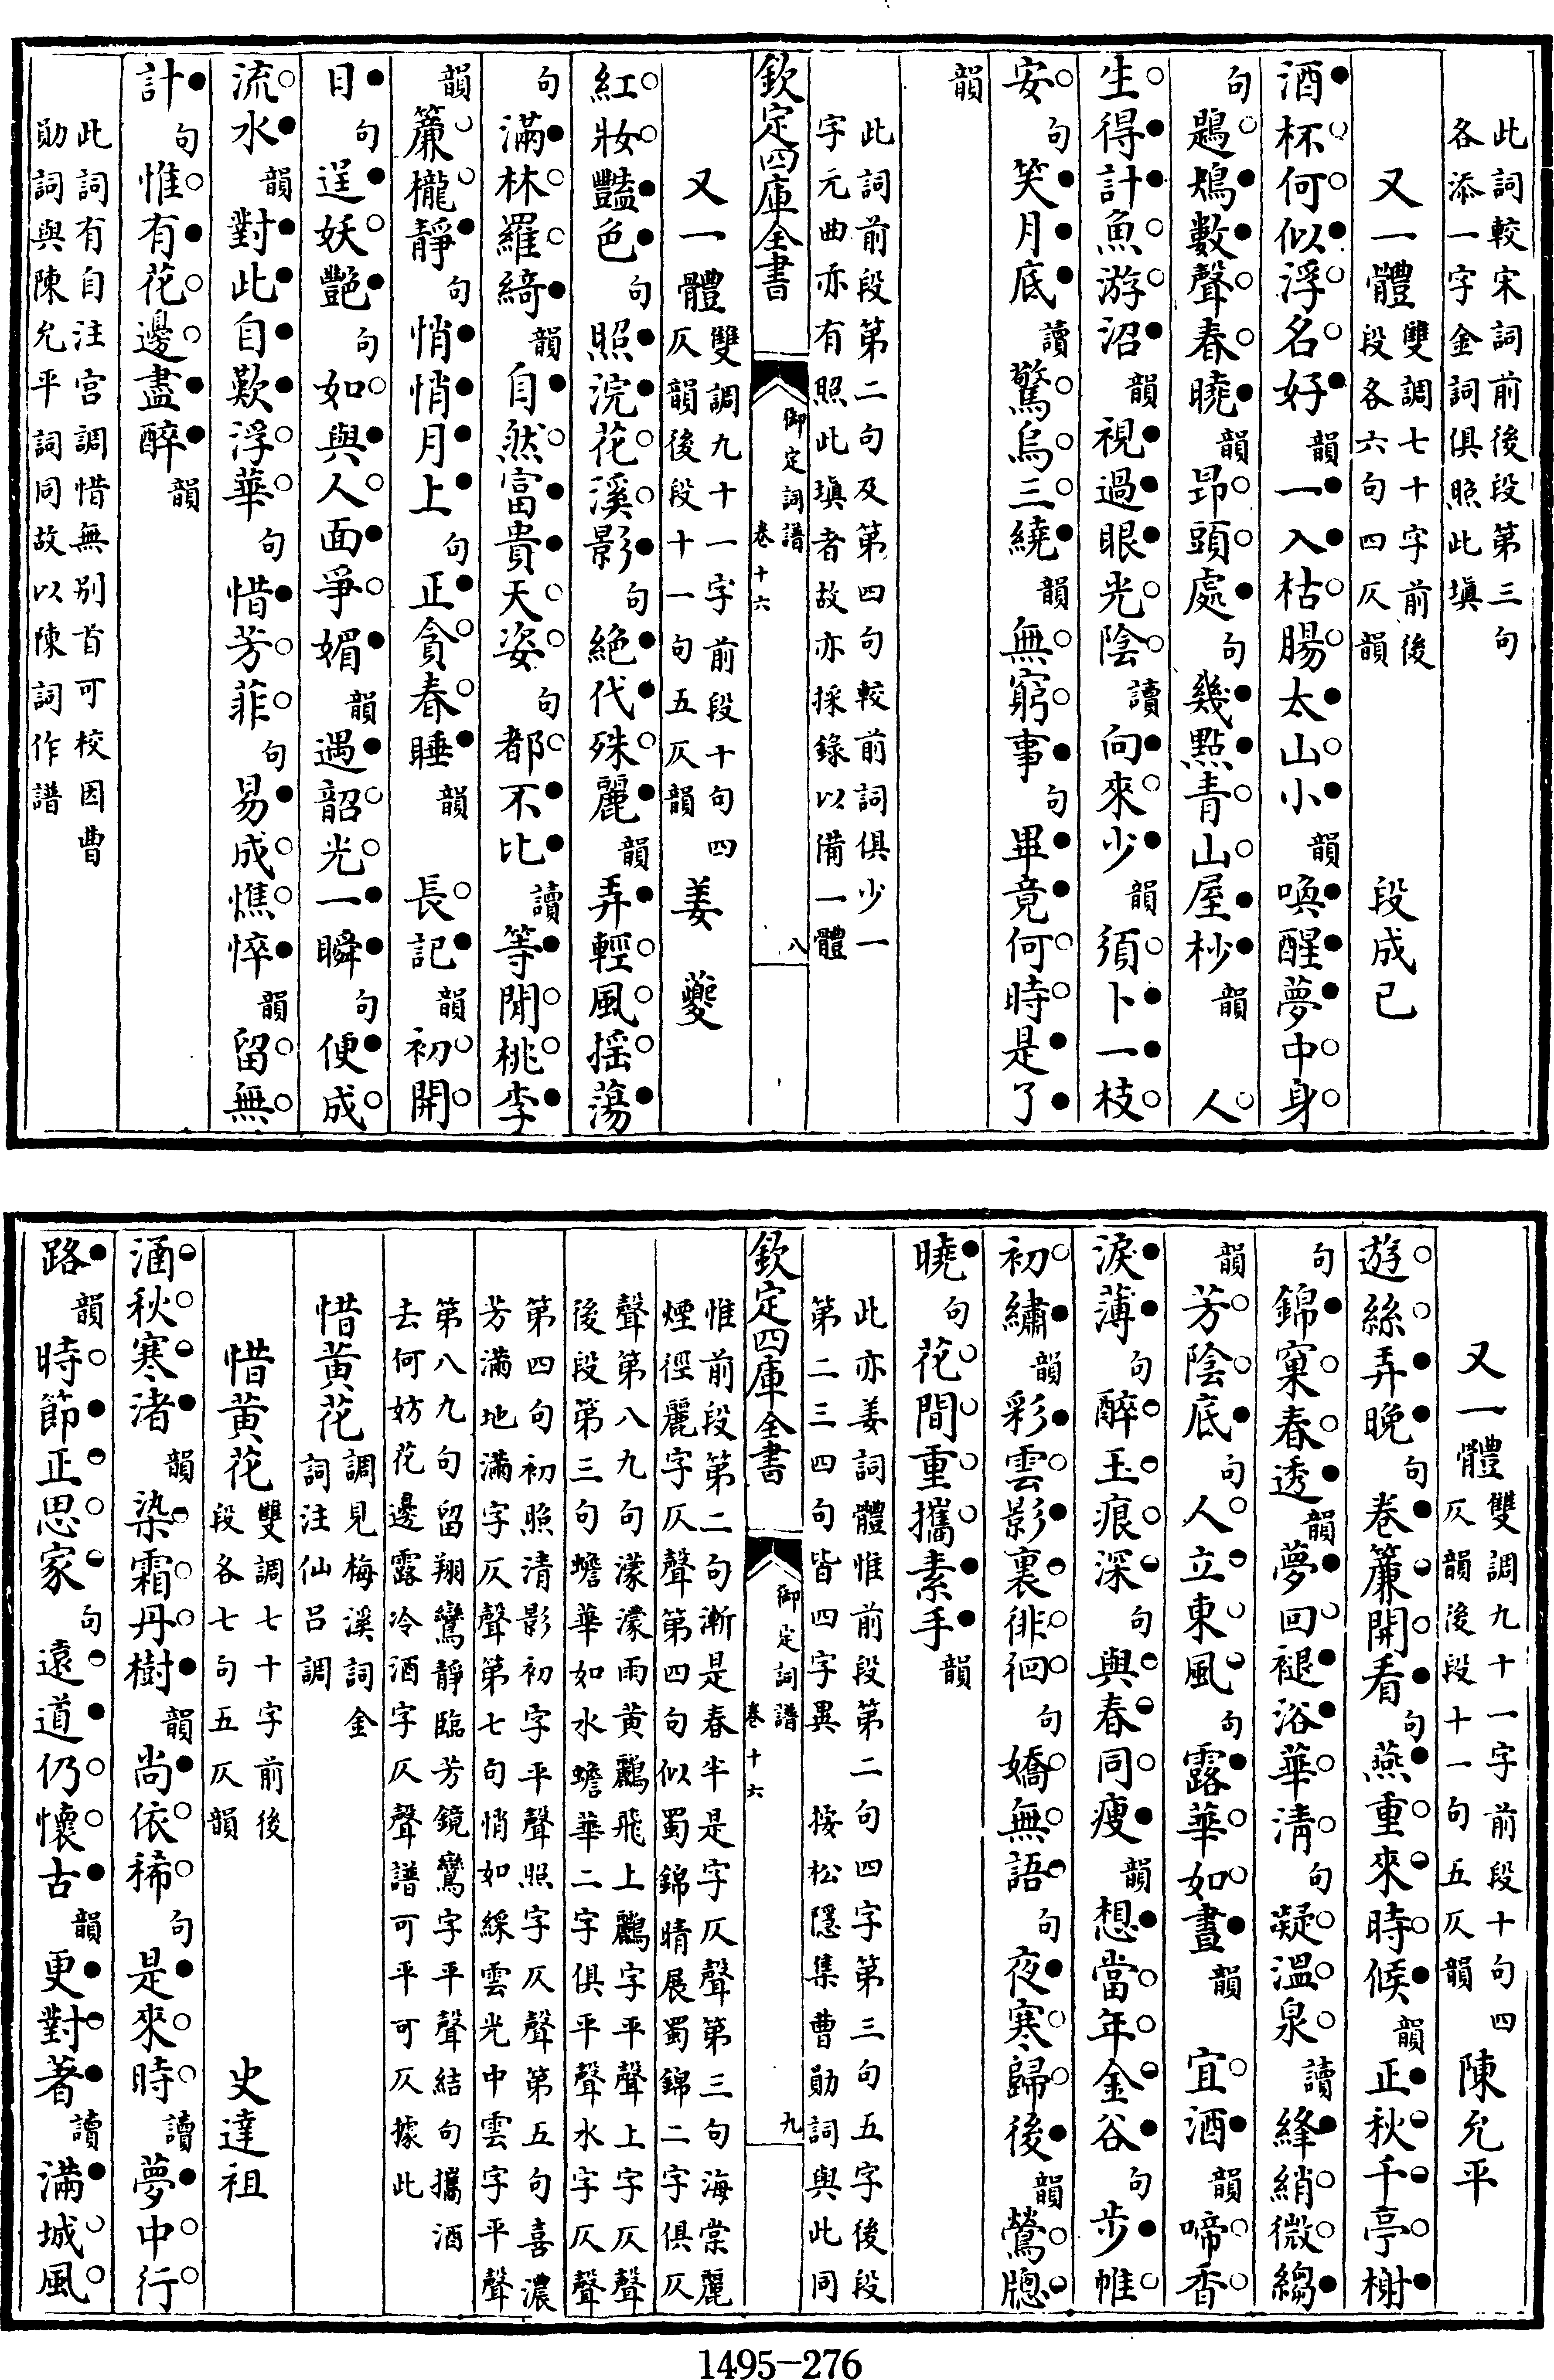 此詞較宋詞前後段第三句
各添一字金詞俱照此填
又一體 雙調七十字前後
段各六句四仄韻 段成己
酒杯何似浮名好韻一入枯腸太山小韻喚醒夢中身
句鶗鴂數聲春曉韻昂頭處句幾點青山屋杪韻 人
生得計魚游沼韻視過眼光陰讀向來少韻須卜一枝
安句笑月底讀驚烏三繞韻無窮事句畢竟何時是了
韻
此詞前段第二句及第四句較前詞俱少一
字元曲亦有照此填者故亦採錄以備一體
欽定四庫全書 御定詞譜 卷十六 八
又一體 雙調九十一字前段十句四
仄韻後段十一句五仄韻 姜夔
紅妝豔色句照浣花溪影句絶代殊麗韻弄輕風搖蕩
句滿林羅綺韻自然富貴天姿句都不比讀等閒桃李
韻簾櫳靜句悄悄月上句正貪春睡韻 長記韻初開
日句逞妖艷句如與人面爭媚韻遇韶光一瞬句便成
流水韻對此自歎浮華句惜芳菲句易成憔悴韻留無
計句惟有花邊盡醉韻
此詞有自注宮調惜無别首可校因曹
勛詞與陳允平詞同故以陳詞作譜
又一體 雙調九十一字前段十句四
仄韻後段十一句五仄韻 陳允平
遊絲弄晚句卷簾開看句燕重來時候韻正秋千亭榭
句錦窠春透韻夢回褪浴華清句凝溫泉讀絳綃微縐
韻芳陰底句人立東風句露華如晝韻 宜酒韻啼香
淚薄句醉玉痕深句與春同瘦韻想當年金谷句步帷
初繡韻彩雲影裏徘徊句嬌無語句夜寒歸後韻鶯牕
曉句花間重攜素手韻
此亦姜詞體惟前段第二句四字第三句五字後段
第二三四句皆四字異 按松隱集曹勛詞與此同
欽定四庫全書 御定詞譜 卷十六 九
惟前段第二句漸是春半是字仄聲第三句海棠麗
煙徑麗字仄聲第四句似蜀錦晴展蜀錦二字俱仄
聲第八九句濛濛雨黄鸝飛上鸝字平聲上字仄聲
後段第三句蟾華如水蟾華二字俱平聲水字仄聲
第四句初照清影初字平聲照字仄聲第五句喜濃
芳滿地滿字仄聲第七句悄如綵雲光中雲字平聲
第八九句留翔鸞靜臨芳鏡鸞字平聲結句攜酒
去何妨花邊露冷酒字仄聲譜可平可仄據此
惜黄花 調見梅溪詞金
詞注仙呂調
惜黄花 雙調七十字前後
段各七句五仄韻 史達祖
涵秋寒渚韻染霜丹樹韻尚依稀句是來時讀夢中行
路韻時節正思家句遠道仍懷古韻更對著讀滿城風
1495-276